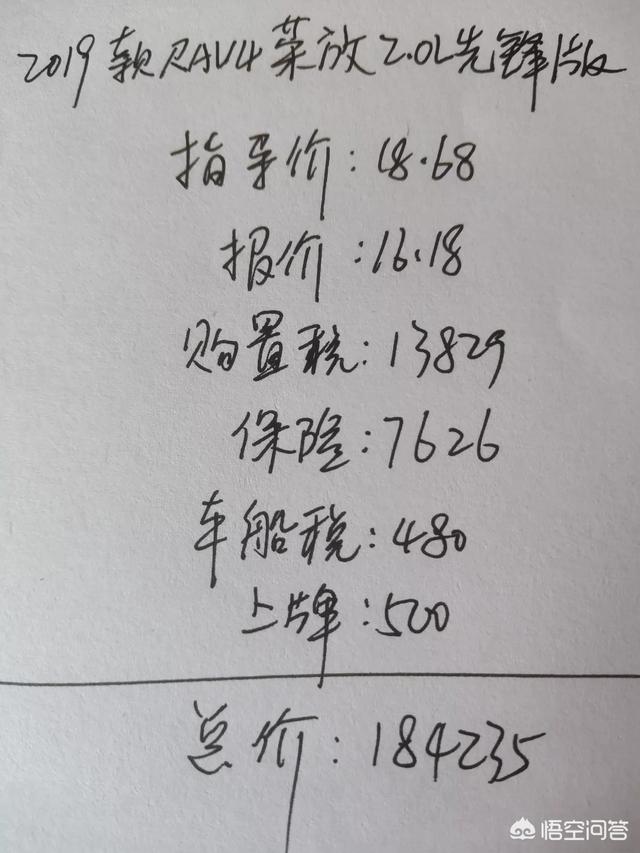 2019款RAV4荣放2.0L先锋版
指导价:18.68
报价:16.18
购置税:13829
保险:7626
车船税:480
上牌:500
总价:184235
悟空问答